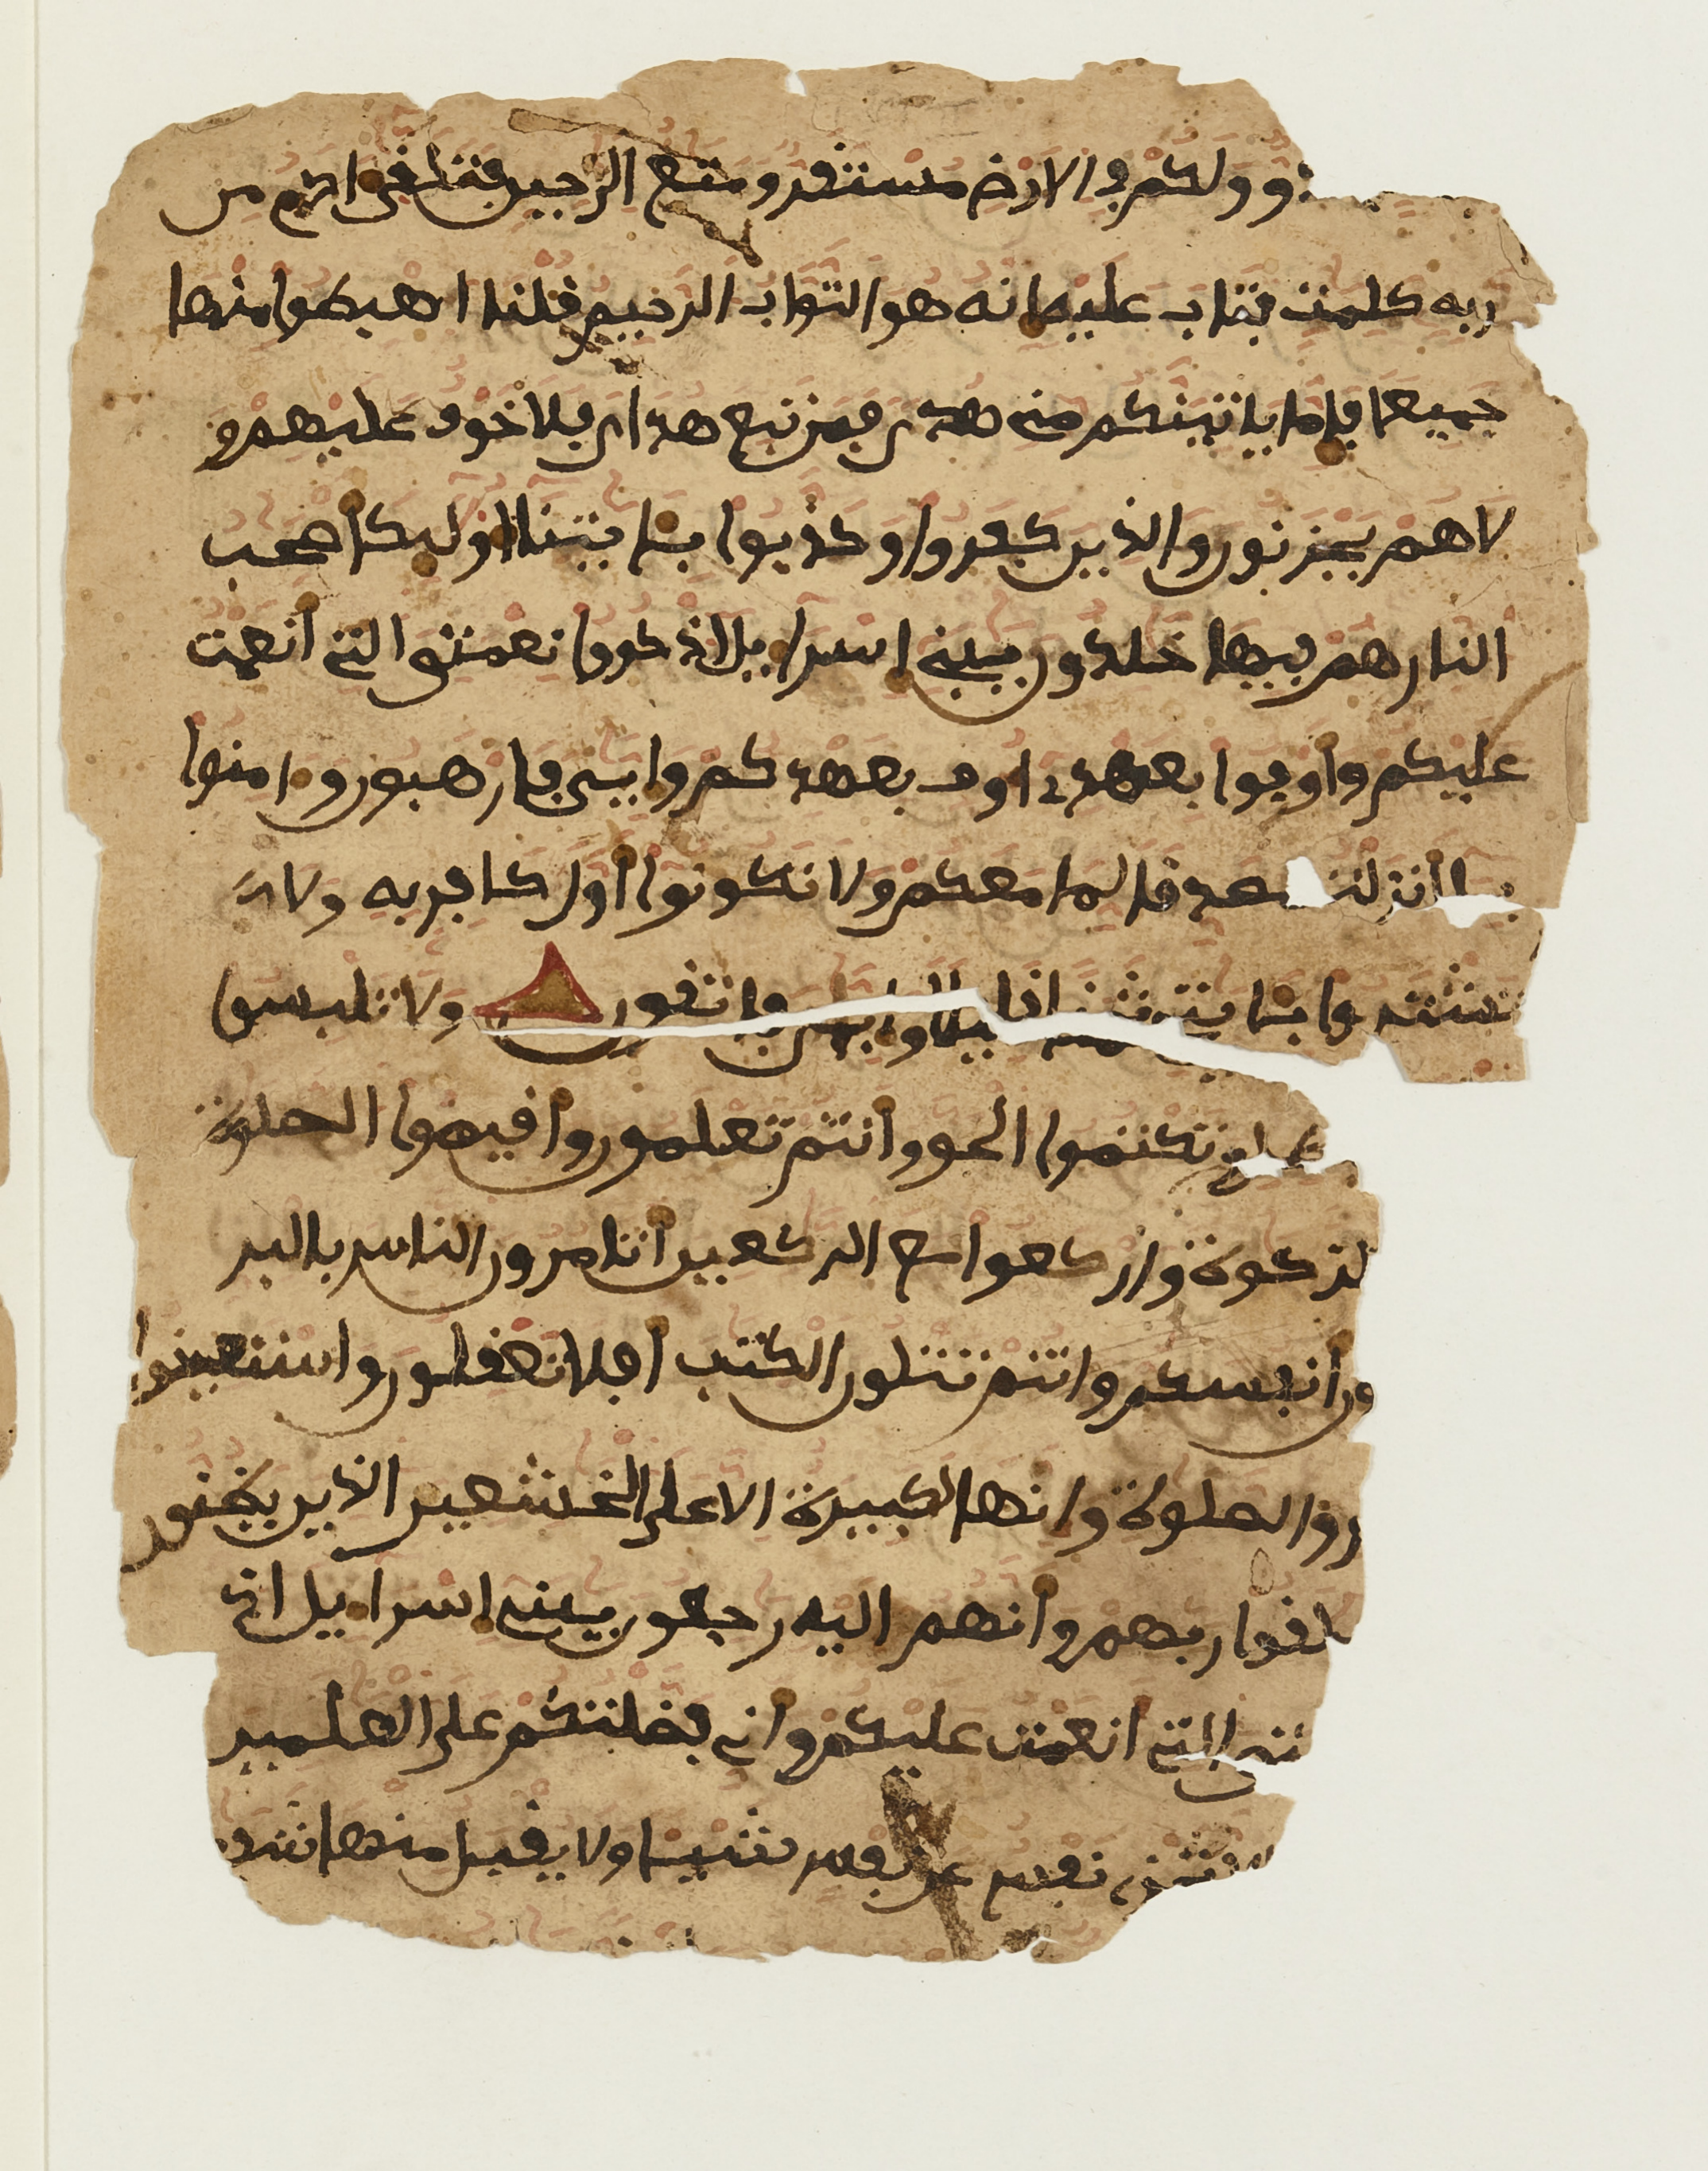 عدو ولكم في الارض مستقر ومتع الى حين فتلقى ادم من
ربه كلمت فتاب عليه انه هو التواب الرحيم قلنا اهبطوا منها
جميعا فاما ياتينكم منى هدى فمن تبع هداى فلا خوف عليهم و
لا هم يحزنون والذين كفروا وكذبوا بـايتنا اوليك اصحب
النار هم فيها خلدون يبنى اسرايل اذكروا نعمتى التى انعمت
عليكم واوفوا بعهدى اوف بعهدكم وايى فارهبون وامنوا
بما انزلت مصدقا لما معكم ولا تكونوا اول كافر به ولا
تشتروا بـايتى ثمنا قليلا وايى فاتقون ولا تلبسوا
تكتموا الحق وانتم تعلمون واقيموا الصلوة
الزكوة واركعوا مع الركعين اتامرون الناس بالبر
ون انفسكم وانتم تتلون الكتب افلا تعقلون واستعينوا
والصلوة وانها لكبيرة الا على الخشعين الذين يظنون
ملقوا ربهم وانهم اليه رجعون يبنى اسرايل اذ
التى انعمت عليكم وانى فضلتكم على العلمين
نفس عن نفس شيـا ولا يقبل منها شفـ